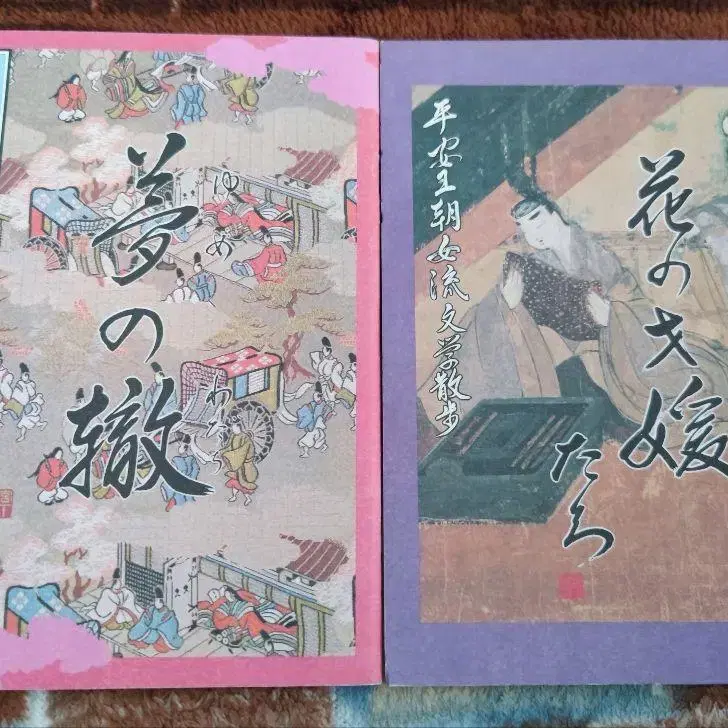 夢の轍
ゆめ
わだち
平安王朝女流文学散歩
花の才媛
たち